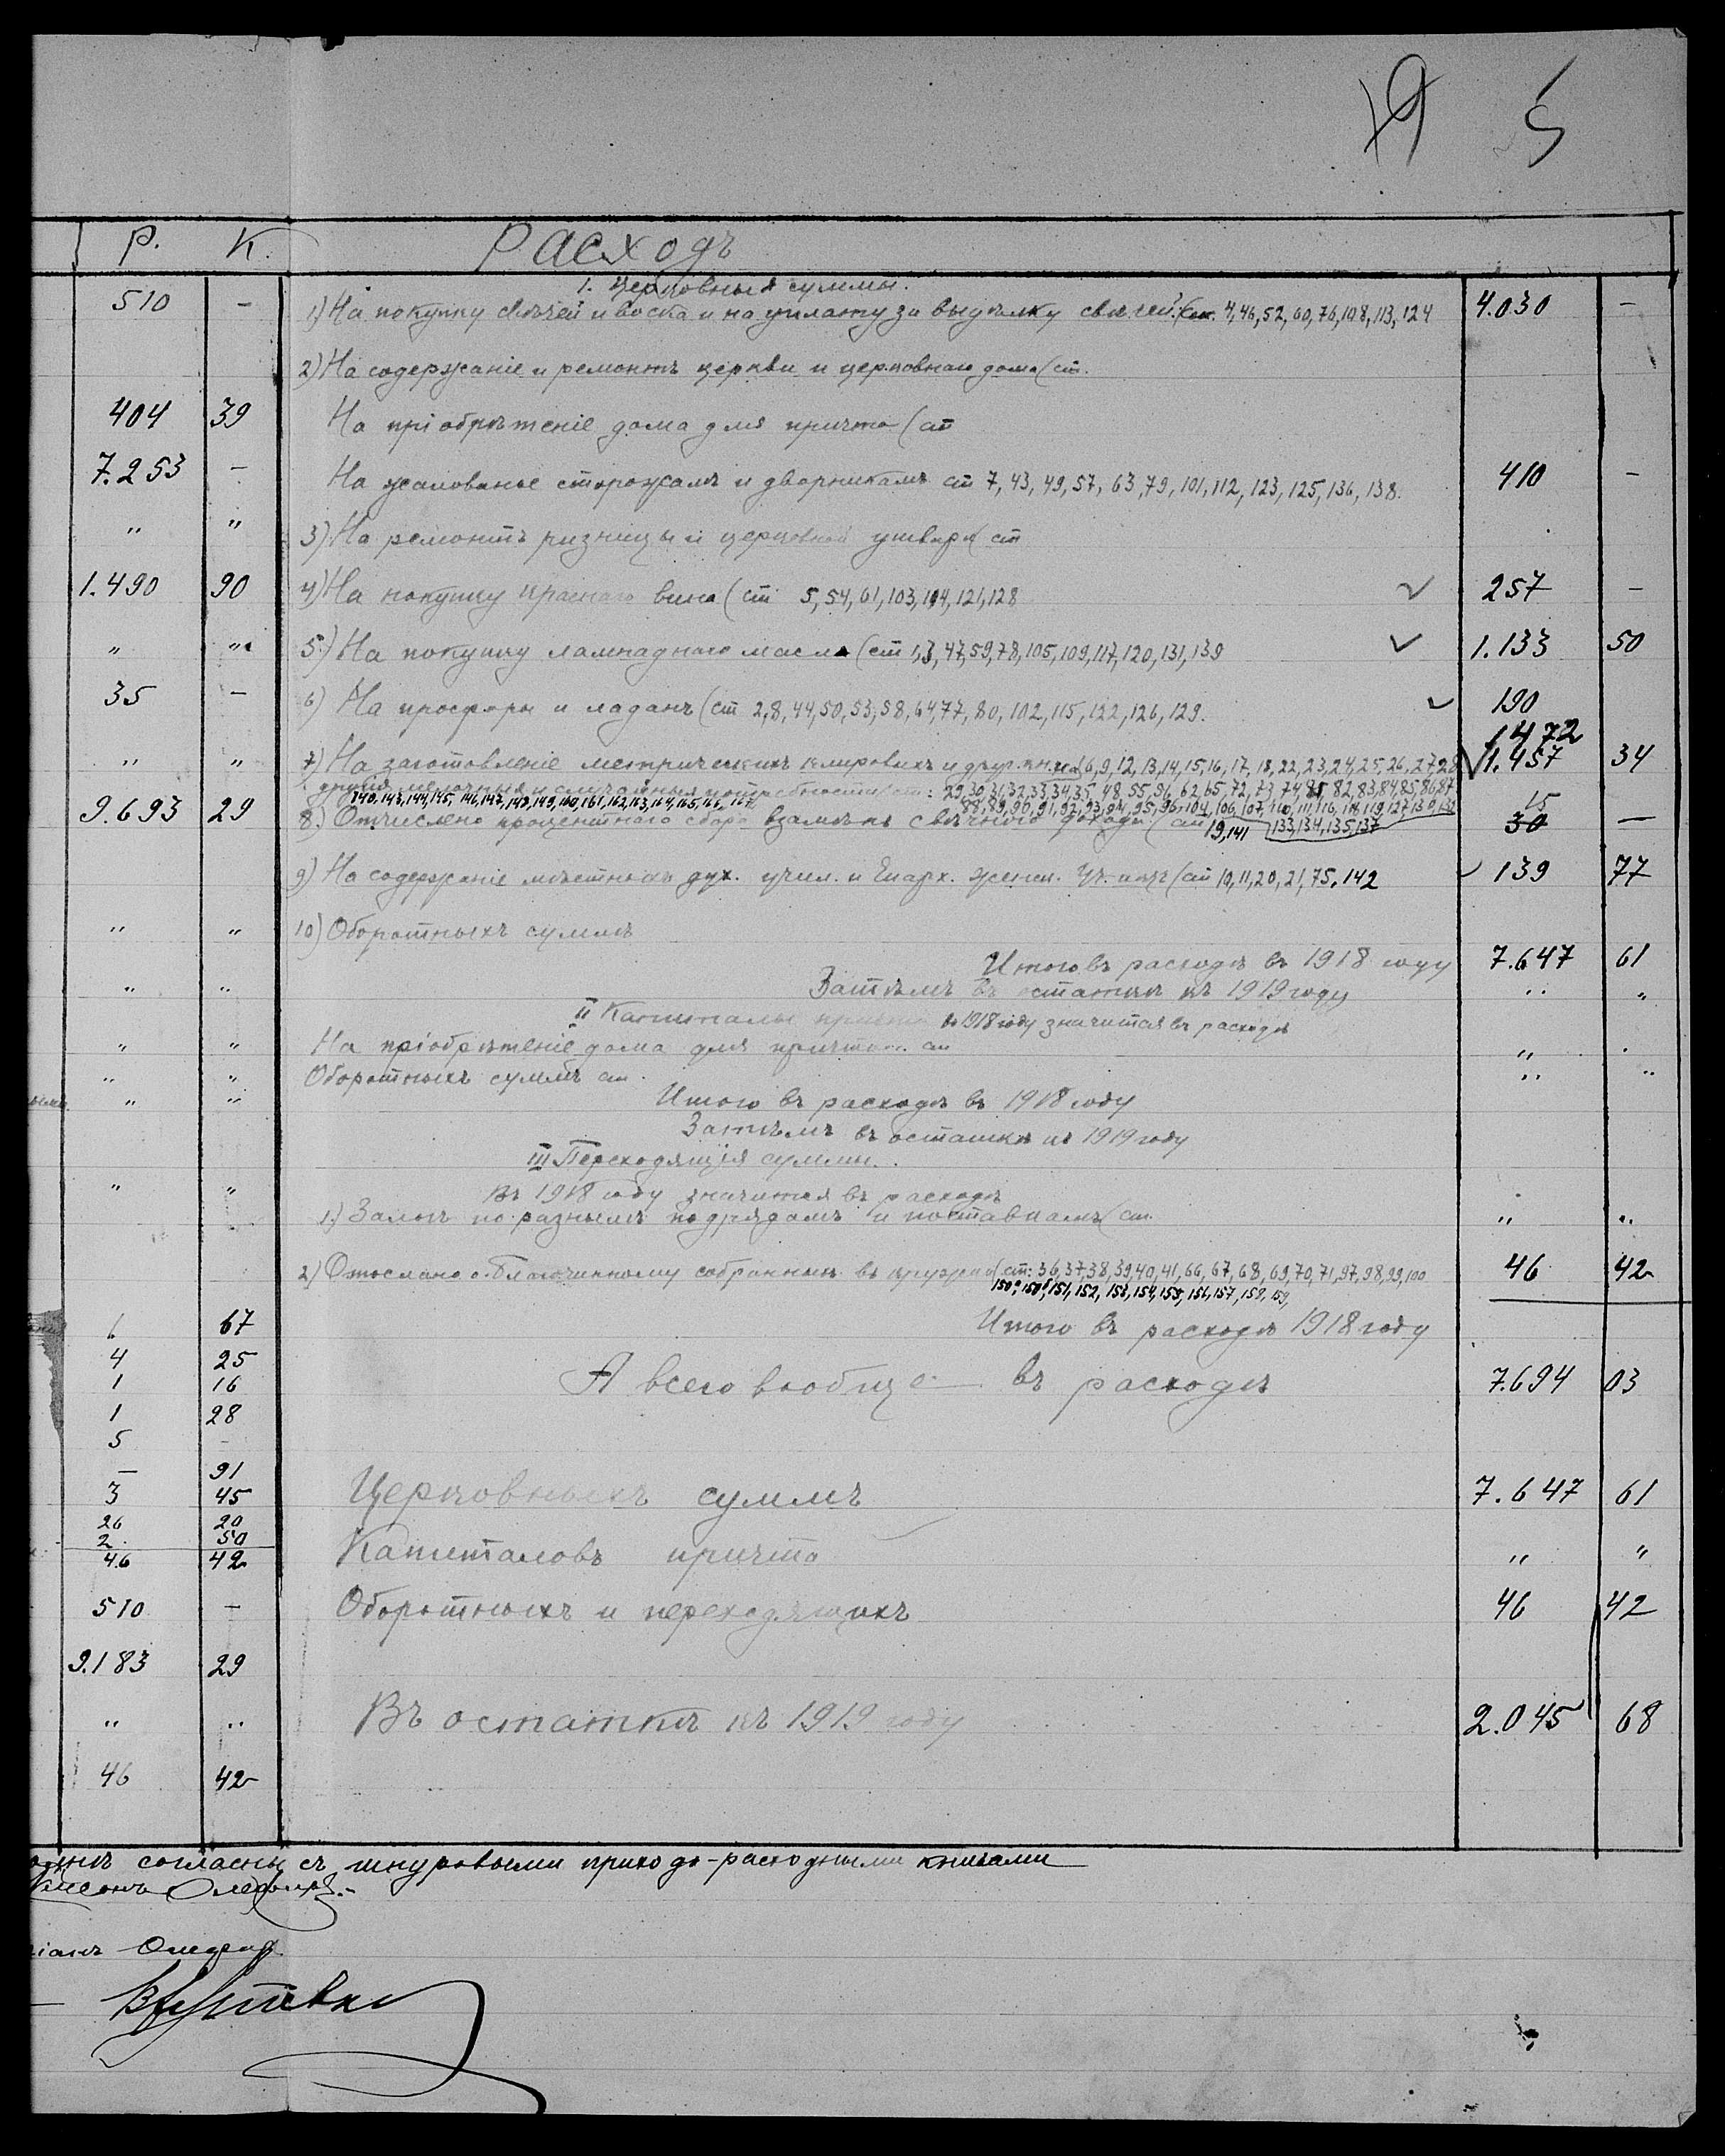 19 5
Р. К. Расходъ
1. Церковныя суммы.
510 - 1) На покупку свѣчей и воска и на уплату за выдѣлку свѣчей (ст. 4, 46, 52, 60, 76, 108, 113, 124 4.030 -
2) На содержаніе и ремонтъ церкви и церковнаго дома (ст.
404 39 На пріобрѣтеніе дома для причта (ст
7.253 - На жалованье сторожамъ и дворникамъ ст 7, 43, 49, 57, 63, 79, 101, 112, 123, 125, 136, 138. 410 -
" " 3) На ремонтъ ризницы и церковной утвари (ст
1.490 90 4) На покупку краснаго вина (ст 5, 54, 61, 103, 114, 121, 128 257 -
" " 5) На покупку лампаднаго масла (ст 1, 3, 47, 59, 78, 105, 109, 117, 120, 131, 139 1.133 50
35 - 6) На просфоры и ладанъ (ст 2, 8, 44, 50, 53, 58, 64, 77, 80, 102, 115, 122, 126, 129. 190
1472
" " 7) На заготовленіе метрическихъ клировыхъ и друг. кн. и на 6, 9, 12, 13, 14, 15, 16, 17, 18, 22, 23, 24, 25, 26, 27, 28 1.457 34
другія мелочныя и случайныя потребности (ст: 29, 30, 31, 32, 33, 34, 35, 48, 55, 56, 62, 65, 72, 73, 74, 81, 82, 83, 84, 85, 86, 87
140, 143, 144, 145, 146, 147, 148, 149, 160, 161, 162, 163, 164, 165, 166, 167 88, 89, 90, 91, 92, 93, 94, 95, 96, 104, 106, 107, 110, 111, 116, 118, 119, 127, 130, 132 15
9.693 29 8.) Отчислено процентнаго сбора взамѣнъ свѣчного дохода (ст 19, 141 133, 134, 135, 137 30 —
9) На содержаніе мѣстныхъ дух. учил. и Епарх. женск. Уч-щъ (ст 10, 11, 20, 21, 75, 142 139 77
" " 10) Оборотныхъ суммъ
Итого въ расходѣ въ 1918 году 7.647 61
" " Затѣмъ въ остаткѣ къ 1919 году " "
II Капиталы причта въ 1918 году значится въ расходѣ
" " На пріобрѣтеніе дома для причта ст " "
" " Оборотныхъ суммъ ст. " "
" " Итого въ расходѣ въ 1918 году
Затѣмъ въ остаткѣ къ 1919 году
III Переходящія суммы.
" " Въ 1918 году значится въ расходѣ
1.) Залогъ по разнымъ подрядамъ и поставкамъ (ст. " "
2) Отослано о. Благочинному собранныхъ въ кружки (ст: 36, 37, 38, 39, 40, 41, 66, 67, 68, 69, 70, 71, 97, 98, 99, 100 46 42
150а, 150б, 151, 152, 153, 154, 155, 156, 157, 158, 159,
67 Итого въ расходѣ 1918 году
4 25
1 16 А всего вообще въ расходѣ 7.694 03
1 28
5 -
— 91
3 45 Церковныхъ суммъ 7.647 61
26 20
2 50
46 42 Капиталовъ причта " "
510 - Оборотныхъ и переходящихъ 46 42
9.183 29
" " Въ остаткѣ къ 1919 году 2.045 68
46 42
согласны съ шнуровыми приходо-расходными книгами